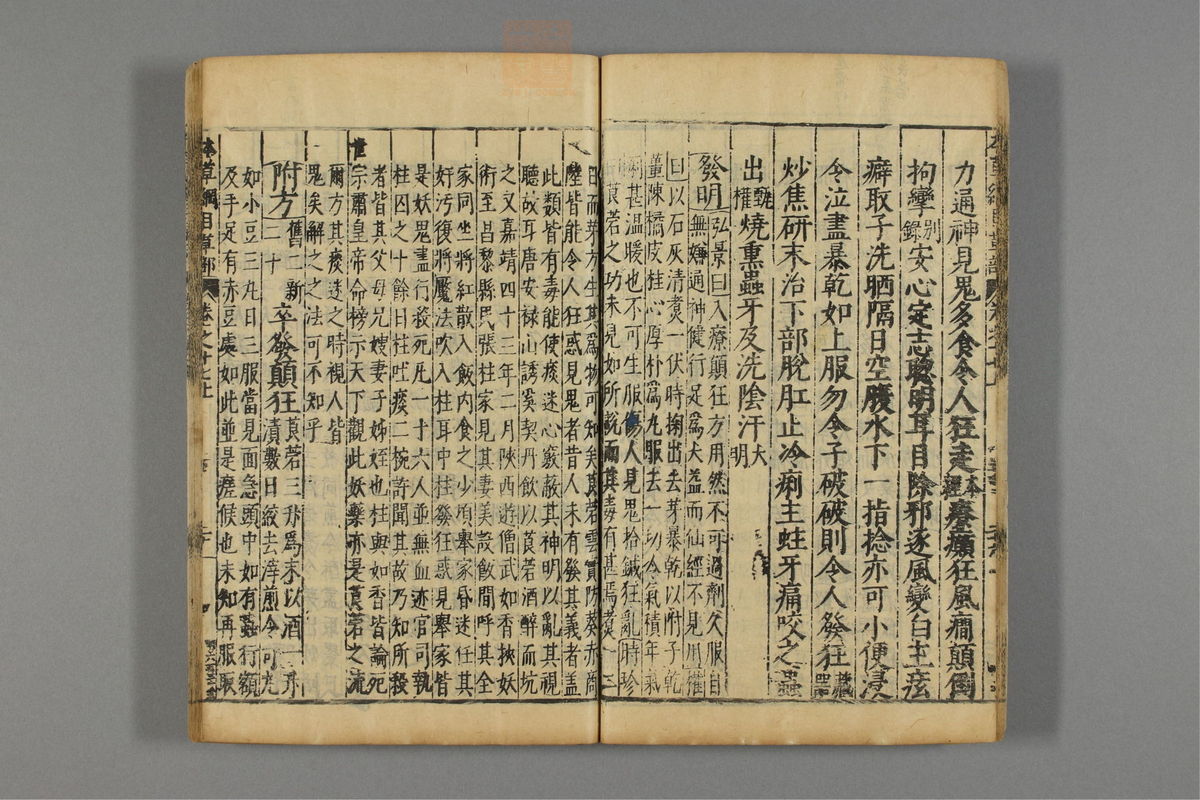 力通神見鬼多食令人狂走本經療癲狂風癇顛倒
拘攣別錄安心定志聰明耳目除邪逐風變白主痃
癖取子洗晒隔日空腹水下一指捻亦可小便浸
令泣盡暴乾如上服勿令子破破則令人發狂藏器
炒焦研末治下部脫肛止冷痢主蛀牙痛咬之蟲
出甄權燒熏蟲牙及洗陰汗大明
發明弘景曰入療顛狂方用然不可過劑久服自
無嫌通神健行足為大益而仙經不見用權
曰以石灰清煮一伏時掬出去芽暴乾以附子乾
薑陳橘皮桂心厚朴為丸服去一切冷氣積年氣
痢甚溫暖也不可生服傷人見鬼拾鍼狂亂時珍
曰莨菪之功未見如所說而其毒有甚焉煮一二
日而芽方生其為物可知矣莨菪雲實防葵赤商
陸皆能令人狂惑見鬼者昔人未有發其義者蓋
此類皆有毒能使痰迷心竅蔽其神明以亂其視
聽故耳唐安祿山誘奚契丹飲以莨菪酒醉而坑
之又嘉靖四十三年二月陝西遊僧武如香挾妖
術至昌黎縣民張柱家見其妻美設飯間呼其全
家同坐將紅散入飯內食之少頃舉家昏迷任其
奸污復將魘法吹入柱耳中柱發狂惑見舉家皆
是妖鬼盡行殺死凡一十六人並無血迹官司執
柱囚之十餘日柱吐痰二碗許聞其故乃知所殺
者皆其父母兄嫂妻子姊姪也柱與如香皆論死
世宗肅皇帝命榜示天下觀此妖藥亦是莨菪之流
爾方其痰迷之時視人皆
鬼矣解之之法可不知乎
附方舊二新二十卒發顛狂莨菪三升為末以酒一升漬數日絞去滓煎令可丸
如小豆三丸日三服當見面急頭中如有蟲行額
及手足有赤豆處如此並是瘥候也未知再服取
本草綱目草部 卷之十七上